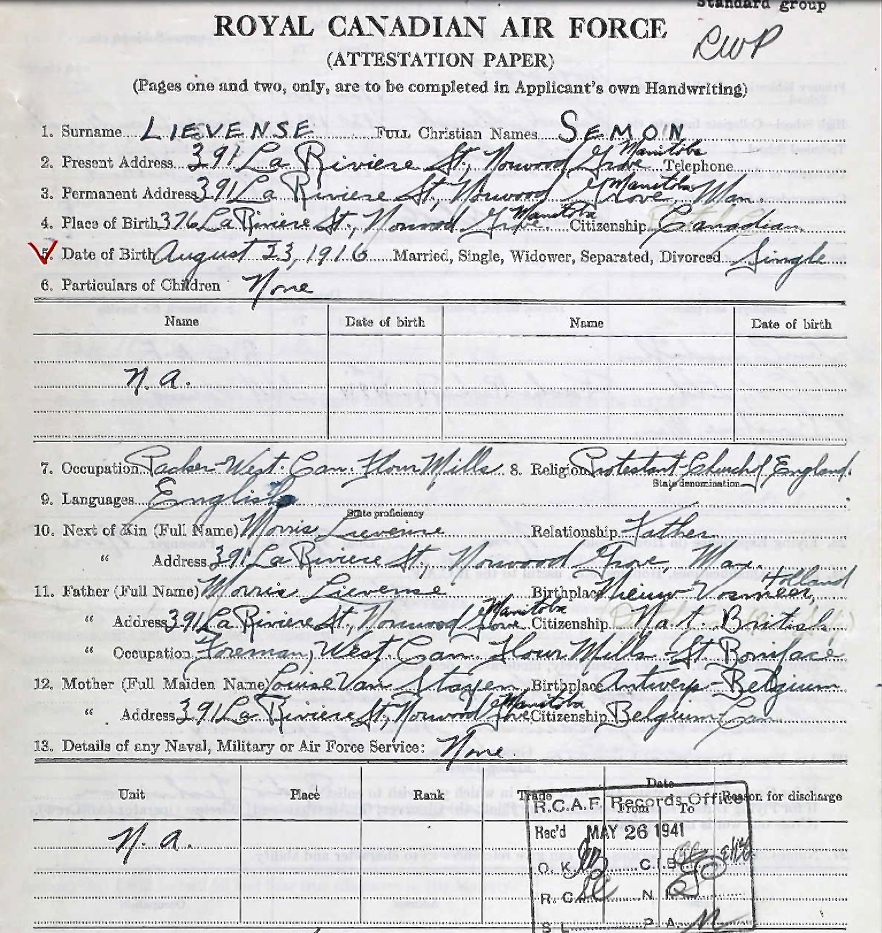 Standard group
ROYAL CANADIAN AIR FORCE
RWP
(ATTESTATION PAPER)
(Pages one and two, only, are to be completed in Applicant's own Handwriting)
1. Surname LIEVENSE FULL Christian Names SEMON
2. Present Address 391 La Riviere St, Norwood Grove Manitoba Telephone
3. Permanent Address 391 La Riviere St, Norwood Grove Manitoba, Man.
4. Place of Birth 376 La Riviere St., Norwood Grove Manitoba Citizenship Canadian
5. Date of Birth August 23, 1916 Married, Single, Widower, Separated, Divorced Single
6. Particulars of Children None
Name Date of birth Name Date of birth
N.a.
7. Occupation Packer-West. Can. Flour Mills 8. Religion Protestant-Church of England.
State denomination
9. Languages English
State proficiency
10. Next of Kin (Full Name) Morris Lievense Relationship Father
" Address 391 La Riviere St, Norwood Grove, Man.
11. Father (Full Name) Morris Lievense Birthplace Nieuw Vosmeer, Holland
" Address 391 La Riviere St., Norwood Grove Manitoba Citizenship Nat. British
" Occupation Foreman, West Can Flour Mills - St Boniface
12. Mother (Full Maiden Name) Louise Van Stayen Birthplace Antwerp-Belgium
" Address 391 La Riviere St, Norwood Grove Manitoba Citizenship Belgium-Can
13. Details of any Naval, Military or Air Force Service: None.
Unit Place Rank Trade Date From To Reason for discharge
N.a.
R.C.A.F. Records Office
Rec'd MAY 26 1941
O.K. C.I.B.
R.C. N.
S L P A